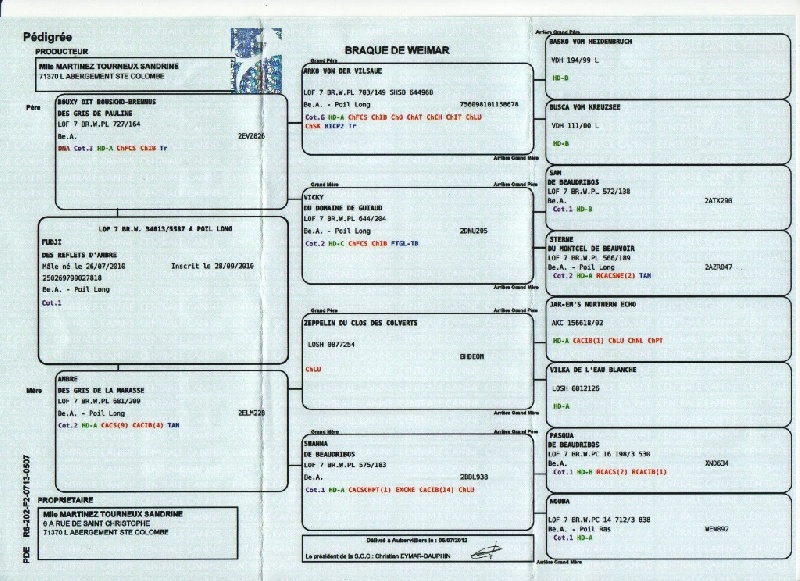 Pédigrée
PRODUCTEUR
Mlle MARTINEZ TOURNEUX SANDRINE
71370 L ABERGEMENT STE COLOMBE
BRAQUE DE WEIMAR
Père
DES GRIS DE PAULINE
LOF 7 BR.W.PL 727/164
Be.A.
2EVZ826
DNA Cot.2 HD-A ChFCS ChIB Tr
LOF 7 BR.W. 34013/5587 A POIL LONG
FUDJI
DES REFLETS D'AMBRE
Mâle né le 26/07/2010 Inscrit le 28/09/2010
250269799027818
Be.A. - Poil Long
Cot.1
Mère
AMBRE
DES GRIS DE LA MARASSE
LOF 7 BR.W.PL 681/209
Be.A. - Poil Long
2ELM228
Cot.2 HD-A CACS(9) CACIB(4) TAN
PROPRIETAIRE
Mlle MARTINEZ TOURNEUX SANDRINE
6 A RUE DE SAINT CHRISTOPHE
71370 L ABERGEMENT STE COLOMBE
Grand Père
ARKO VON DER VILSAUE
LOF 7 BR.W.PL 703/149 SHSB 644960
Be.A. - Poil Long
756098101158678
Cot.6 HD-A ChFCS ChIB ChO ChAT ChCH ChIT ChLU
ChSK RICP2 Tr
Grand Mère
VICKY
DU DOMAINE DE GUIAUD
LOF 7 BR.W.PL 644/204
Be.A. - Poil Long
2DNU205
Cot.2 HD-C ChFCS ChIB FTGL-TB
Grand Père
ZEPPELIN DU CLOS DES COLVERTS
LOSH 0877264
ChLU
Grand Mère
SHANNA
DE BEAUDRIBOS
LOF 7 BR.W.PL 575/183
Be.A.
2BDL938
Cot.1 HD-A CACSCHPT(1) EXCHE CACIB(14) ChLU
Délivré à Aubervilliers le : 05/07/2013
Le président de la S.C.C : Christian EYMAR-DAUPHIN
Arrière Grand Père
BASKO VOM HEIDENBRUCH
VDH 194/99 L
HD-B
BUSCA VOM KREUZSEE
VDH 111/00 L
HD-B
Arrière Grand Mère
SAM
DE BEAUDRIBOS
LOF 7 BR.W.PL 572/138
Be.A.
2ATX290
Cot.1 HD-B
STERNE
DU MONTCEL DE BEAUVOIR
LOF 7 BR.W.PL 566/189
Be.A. - Poil Long
2AZR047
Cot.2 HD-A RCACSNE(2) TAN
JAR-EM'S NORTHERN ECHO
AKC 156618/02
HD-A CACIB(1) ChLU ChNL ChPT
VILKA DE L'EAU BLANCHE
LOSH 0812126
HD-A
PASQUA
DE BEAUDRIBOS
LOF 7 BR.W.PC 16 198/3 538
Be.A.
XND634
Cot.1 HD-B RCACS(2) RCACIB(1)
LOF 7 BR.W.PC 14 712/3 038
Be.A. - Poil Ras
WEM892
Cot.1 HD-A
Arrière Grand Mère